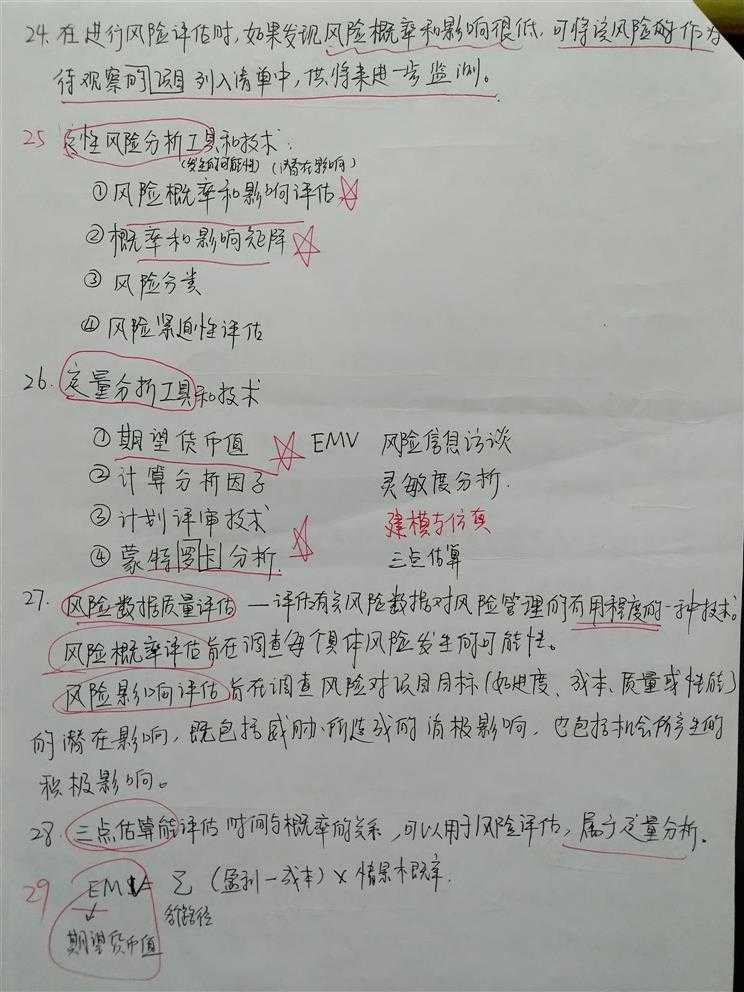 24. 在进行风险评估时,如果发现风险概率和影响很低,可将该风险的作为
待观察的项目列入清单中,供将来进一步监测。
25 定性风险分析工具和技术:
(发生的可能性) (潜在影响)
①风险概率和影响评估
②概率和影响矩阵
③风险分类
④风险紧迫性评估
26. 定量分析工具和技术
①期望货币值 EMV 风险信息访谈
②计算分析因子 灵敏度分析.
③计划评审技术 建模与仿真
④蒙特罗卡分析. 三点估算
27. 风险数据质量评估 — 评估有关风险数据对风险管理的有用程度的一种技术。
风险概率评估旨在调查每个具体风险发生的可能性。
风险影响评估旨在调查风险对项目目标(如进度、成本、质量或性能)
的潜在影响,既包括威胁所造成的消极影响,也包括机会所产生的
积极影响。
28. 三点估算能评估时间与概率的关系,可以用于风险评估,属于定量分析。
29 EMV= Σ (盈利—成本)×情景概率.
各路径
期望货币值